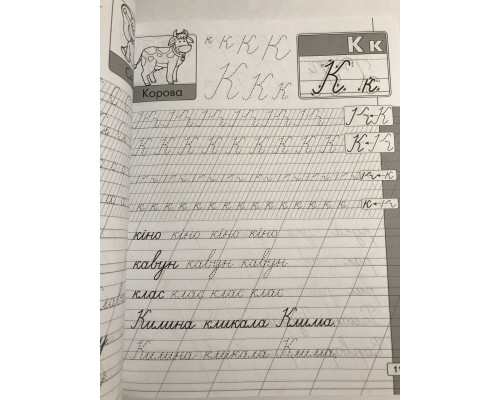 К к К К
К к
Корова
К К к
К. .к.
К К К К К К К
К К К К К К К К К
к к к к к к к к к к к к к к к
кіно кіно кіно кіно
кавун кавун кавун
клас клас клас клас
Килина кликала Клима.
Килина кликала Клима.